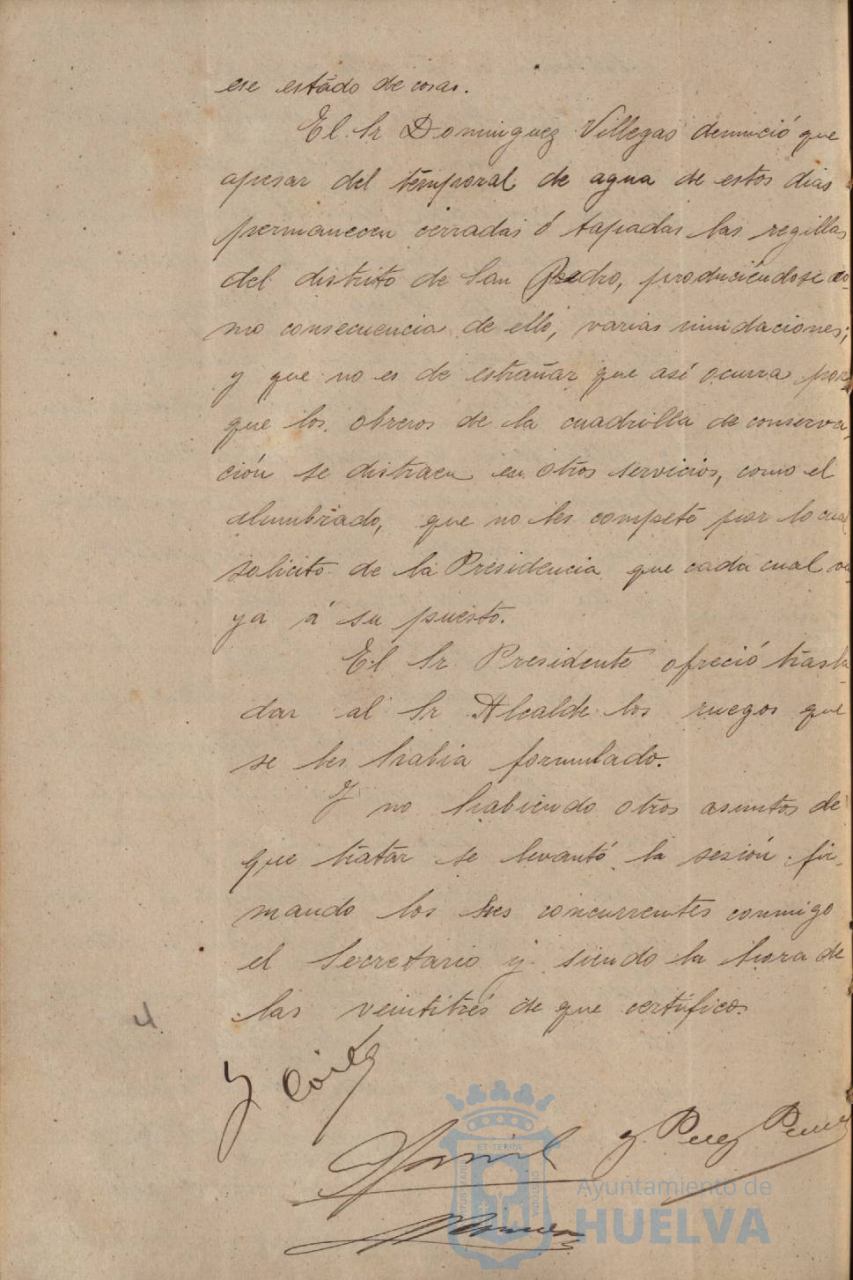 ese estado de cosas.
El Sr Dominguez Villegas denunció que
apesar del temporal de agua de estos dias
permanecen cerradas ó tapadas las regillas
del distrito de San Pedro, produciéndose co-
mo consecuencia de ello, varias inundaciones;
y que no es de estrañar que asi ocurra por-
que los obreros de la cuadrilla de conserva-
ción se distraen en otros servicios, como el
alumbrado, que no les compete por lo cual
solicito de la Presidencia que cada cual va-
ya á su puesto.
El Sr Presidente ofreció trasla-
dar al Sr Alcalde los ruegos que
se les habia formulado.
Y no habiendo otros asuntos de
que tratar se levantó la sesión fir-
mando los Sres concurrentes conmigo
el Secretario y siendo la hora de
las veintitrés de que certifico.
4
y Perez
Ayuntamiento de
HUELVA